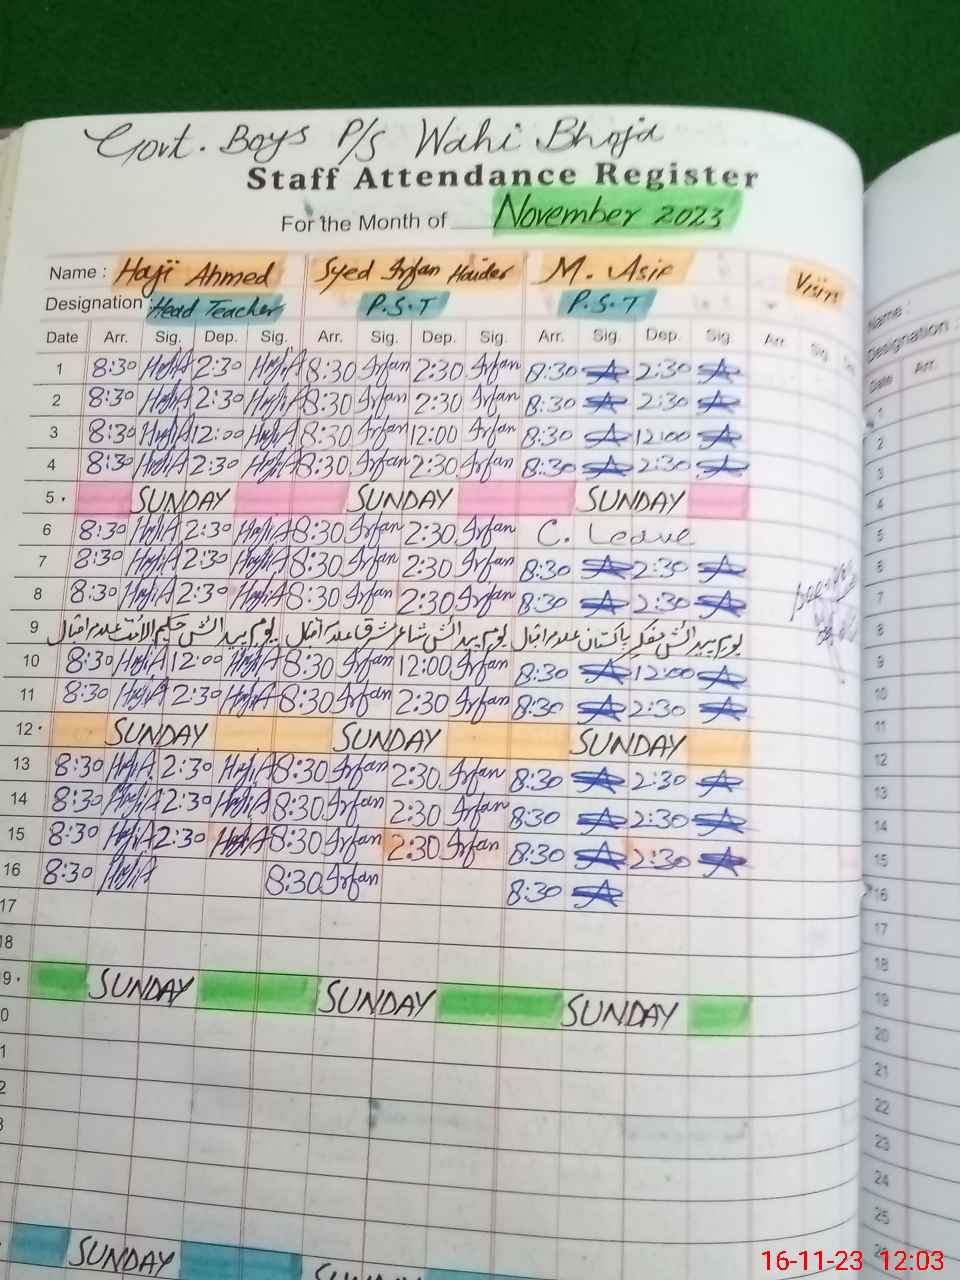 Govt. Boys P/S Wahi Bhoja
Staff Attendance Register
For the Month of November 2023
Name : Haji Ahmed Syed Irfan Haider M. Asif Visits
Designation : Head Teacher P.S.T P.S.T
Date Arr. Sig. Dep. Sig. Arr. Sig. Dep. Sig. Arr. Sig. Dep. Sig. Arr. Sig.
1 8:30 HajiA 2:30 HajiA 8:30 Irfan 2:30 Irfan 8:30 A 2:30 A
2 8:30 HajiA 2:30 HajiA 8:30 Irfan 2:30 Irfan 8:30 A 2:30 A
3 8:30 HajiA 12:00 HajiA 8:30 Irfan 12:00 Irfan 8:30 A 12:00 A
4 8:30 HajiA 2:30 HajiA 8:30 Irfan 2:30 Irfan 8:30 A 2:30 A
5 SUNDAY SUNDAY SUNDAY
6 8:30 HajiA 2:30 HajiA 8:30 Irfan 2:30 Irfan C. Leave
7 8:30 HajiA 2:30 HajiA 8:30 Irfan 2:30 Irfan 8:30 A 2:30 A
8 8:30 HajiA 2:30 HajiA 8:30 Irfan 2:30 Irfan 8:30 A 2:30 A
9 یوم پیدائش حکیم الامت علامہ اقبال یوم پیدائش شاعر مشرق علامہ اقبال یوم پیدائش مفکر پاکستان علامہ اقبال
10 8:30 HajiA 12:00 HajiA 8:30 Irfan 12:00 Irfan 8:30 A 12:00 A
11 8:30 HajiA 2:30 HajiA 8:30 Irfan 2:30 Irfan 8:30 A 2:30 A
12 SUNDAY SUNDAY SUNDAY
13 8:30 HajiA 2:30 HajiA 8:30 Irfan 2:30 Irfan 8:30 A 2:30 A
14 8:30 HajiA 2:30 HajiA 8:30 Irfan 2:30 Irfan 8:30 A 2:30 A
15 8:30 HajiA 2:30 HajiA 8:30 Irfan 2:30 Irfan 8:30 A 2:30 A
16 8:30 HajiA 8:30 Irfan 8:30 A
17
18
9 SUNDAY SUNDAY SUNDAY
0
1
2
3
SUNDAY
Name :
Designation :
Date Arr.
1
2
3
4
5
6
7
8
9
10
11
12
13
14
15
16
17
18
19
20
21
22
23
24
25
16-11-23 12:03